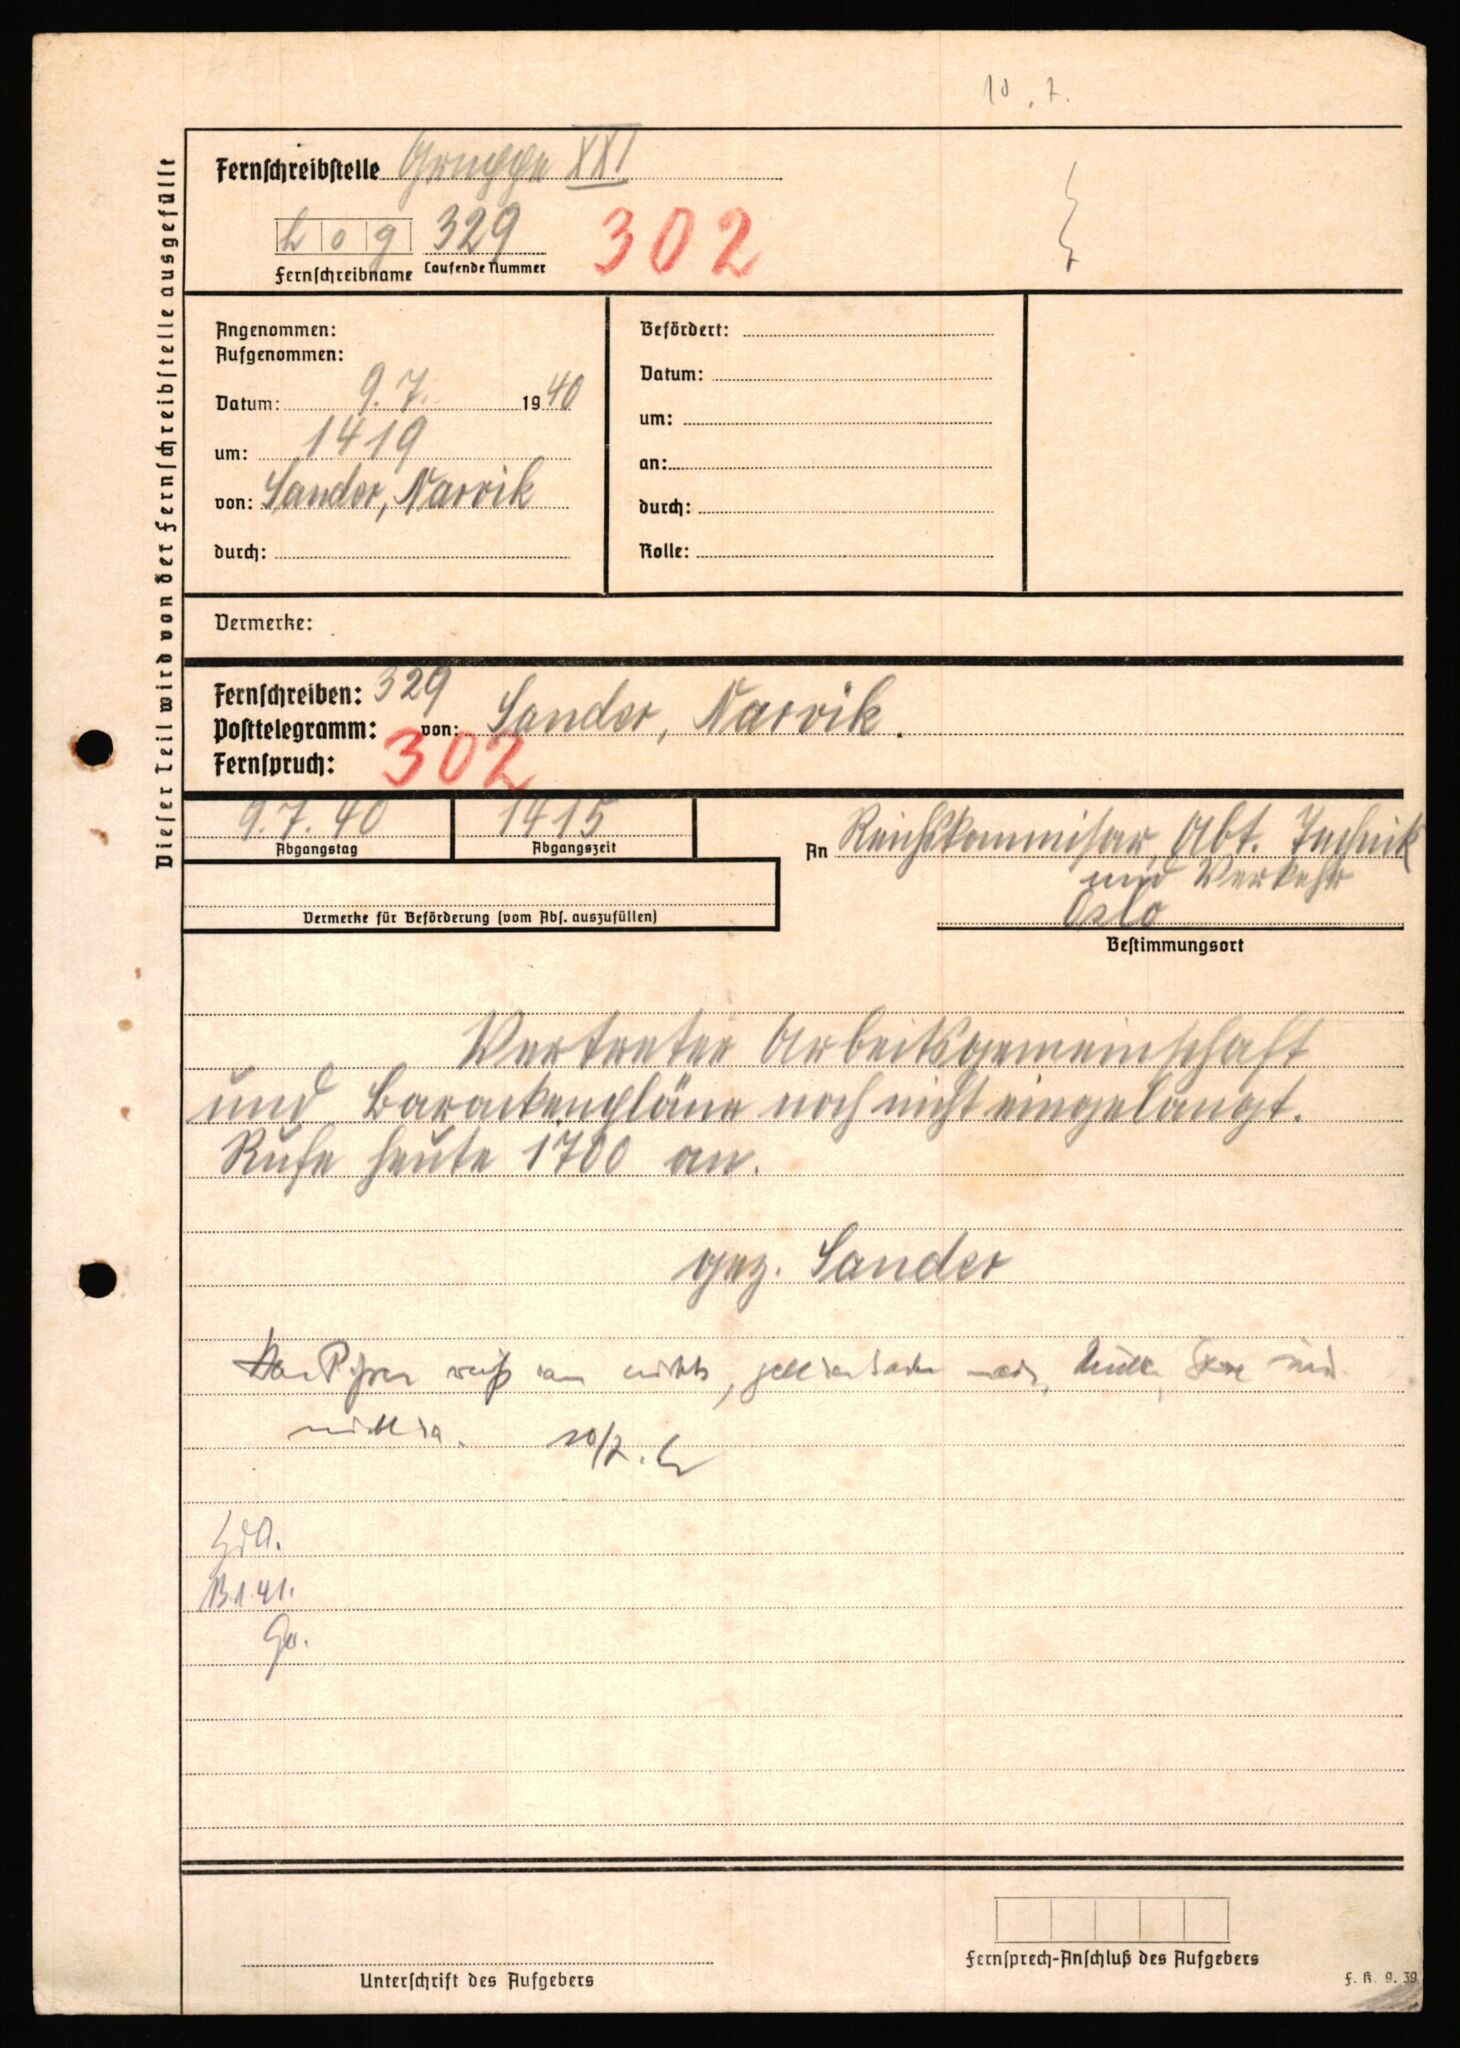 10.7.
Dieser Teil wird von der Fernschreibstelle ausgefüllt
Fernschreibstelle Gruppe XXI
h o g 329 302
Fernschreibname Laufende Nummer
Angenommen:
Aufgenommen:
Datum: 9.7. 1940
um: 1419
von: Sander, Narvik
durch:
Befördert:
Datum:
um:
an:
durch:
Rolle:
Vermerke:
Fernschreiben: 329
Posttelegramm: von: Sander, Narvik.
Fernspruch: 302
9.7.40 1415
Abgangstag Abgangszeit
An Reichskommisar, Abt. Technik
und Verkehr
Oslo
Vermerke für Beförderung (vom Abs. auszufüllen)
Bestimmungsort
Vertreter Arbeitsgemeinschaft
und Barackenpläne noch nicht eingelangt.
Rufe heute 1700 an.
gez. Sander
weiß nichts,
10/7.
ZdA.
13.1.41.
Unterschrift des Aufgebers
Fernsprech-Anschluß des Aufgebers
F. K. 9. 39